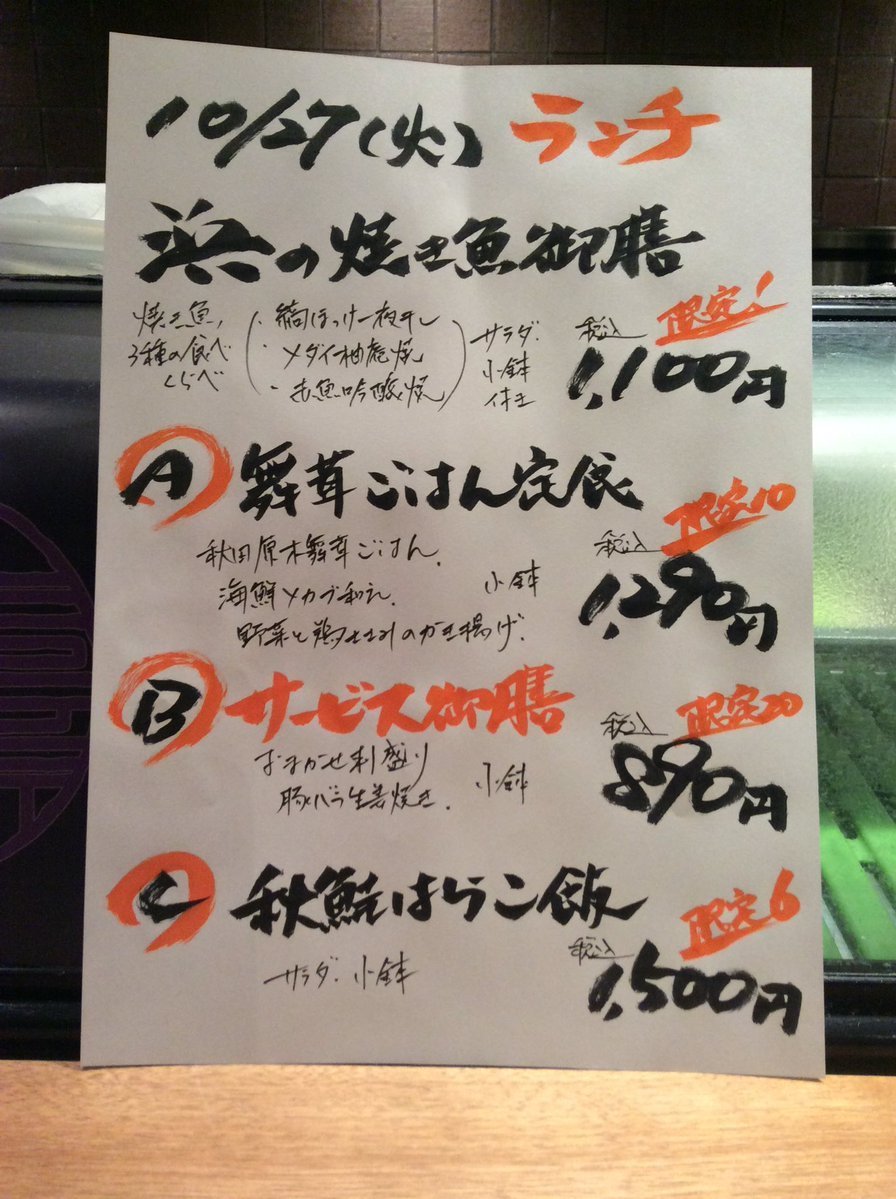 10/27(火) ランチ
浜の焼き魚御膳
焼き魚
3種の食べ
くらべ
・縞ほっけ一夜干し
・メダイ柚庵焼
・赤魚吟醸焼
サラダ.
小鉢
限定1
税込
1,100円
A 舞茸ごはん定食
秋田原木舞茸ごはん.
海鮮メカブ和え.
野菜と鶏ささみのかき揚げ.
小鉢
限定10
税込
1,290円
B サービス御膳
おまかせ刺盛り
豚バラ生姜焼き.
小鉢
限定20
税込
890円
C 秋鮭はらこ飯
サラダ. 小鉢
限定6
税込
1,500円